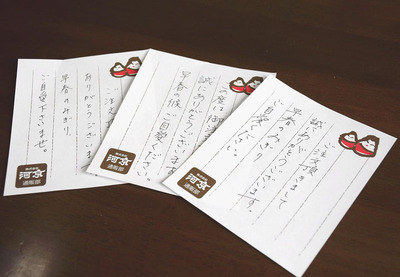 ご注文頂きまして
誠にありがとうございます。
早春のみぎり
ご自愛ください。
河京
通販部
の度は御注
誠にありがとうございます
早春の候、ご自愛ください。
河京
通販部
ご注
ありがとうございま
早春のみぎり、
ご自愛下さいませ。
河京
通販部